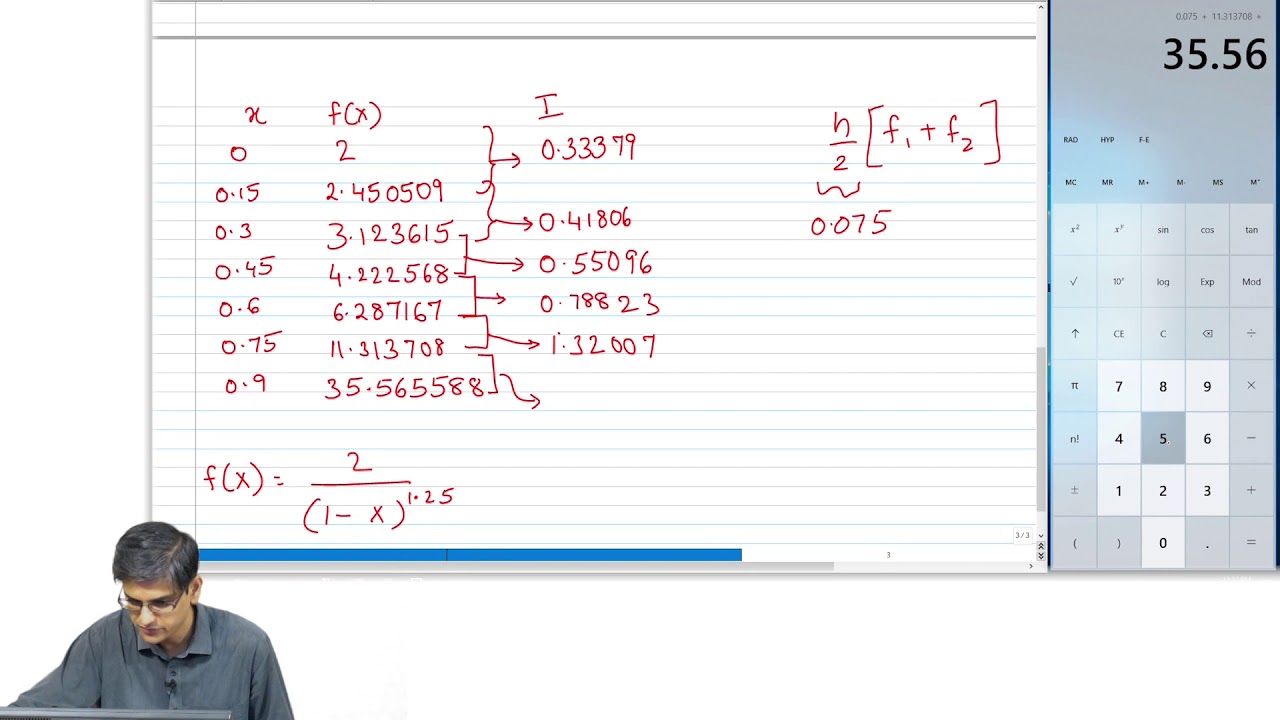 0.075 + 11.313708 +
35.56
x f(x) I
0 2 0.33379
0.15 2.450509
0.3 3.123615 0.41806
0.45 4.222568 0.55096
0.6 6.287167 0.78823
0.75 11.313708 1.32007
0.9 35.565588
h/2 [f₁ + f₂]
0.075
f(x) = 2/(1 - x)^1.25
RAD HYP F-E
MC MR M+ M- MS M˅
x² xʸ sin cos tan
√ 10ˣ log Exp Mod
↑ CE C ⌫ ÷
π 7 8 9 ×
n! 4 5 6 −
± 1 2 3 +
( ) 0 . =
3/3
3